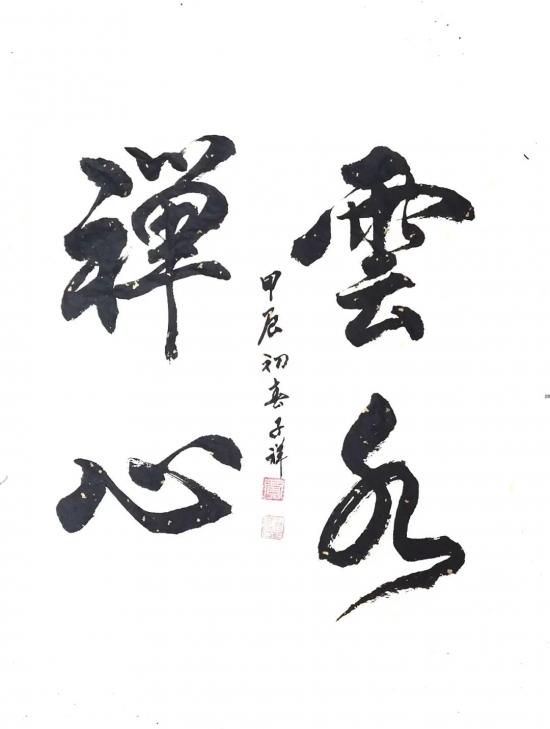 雲水
禪心
甲辰初春子祥